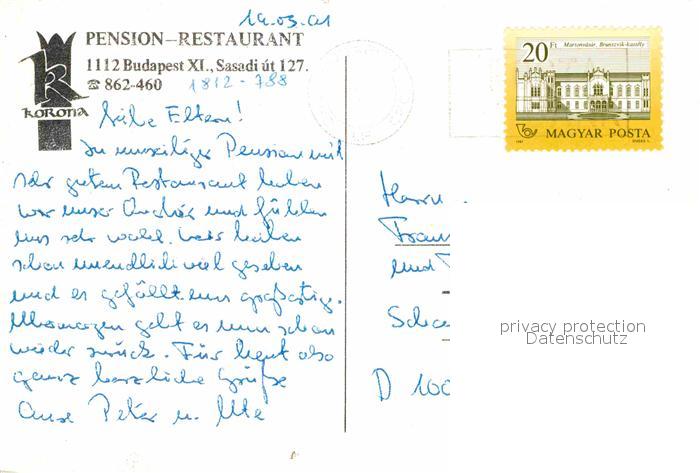 19.03.91
PENSION–RESTAURANT
1112 Budapest XI., Sasadi út 127.
☎ 862-460 1812-788
Korona
Liebe Eltern!
In unserer Pension mit
sehr gutem Restaurant haben
wir unser und fühlen
uns sehr wohl. Wir haben
schon unendlich viel gesehen
und es gefällt uns großartig.
Übermorgen geht es nun schon
wieder zurück. Für heut also
ganz herzliche Grüße
Eure Peter u. Ute
20 Ft
Martonvásár, Brunszvik-kastély
MAGYAR POSTA
1987
Herrn
und
D 100
privacy protection
Datenschutz